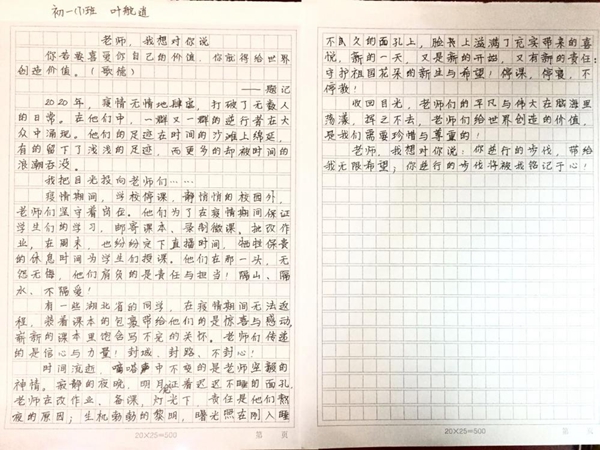 初一(1)班 叶航道
老师，我想对你说
你若要喜爱你自己的价值，你就得给世界
创造价值。(歌德)
——题记
2020年，疫情无情地肆虐，打破了无数人
的日常。在他们中，一群又一群的逆行者在大
众中涌现。他们的足迹在时间的沙滩上绵延，
有的留下了浅浅的足迹，而更多的却被时间的
浪潮吞没。
我把目光投向老师们……
疫情期间，学校停课，静悄悄的校园外，
老师们坚守着岗位。他们为了在疫情期间保证
学生们的学习，邮寄课本、录制微课、批改作
业，在周末，也纷纷定下直播时间，牺牲保贵
的休息时间为学生们授课。他们在那一头，无
怨无悔，他们肩负的是责任与担当！隔山、隔
水、不隔爱！
有一些湖北省的同学，在疫情期间无法返
程，装着课本的包裹带给他们的是惊喜与感动，
崭新的课本里饱含写不完的关怀。老师们传递
的是信心与力量！封城、封路、不封心！
时间流逝，嘀嗒声中不变的是老师坚毅的
神情。寂静的夜晚，明月证看迟迟不睡的面孔，
老师在改作业、备课，灯光下，责任是他们熬
夜的原因；生机勃勃的黎明，曙光照在刚入睡
20×25=500
第 页
不久的面孔上，脸上溢满了充实带来的喜
悦，新的一天，又是新的开始，又有新的责任：
守护祖国花朵的新生与希望！停课，停寝，不
停教！
收回目光，老师们的平凡与伟大在脑海里
荡漾，挥之不去，老师们给世界创造的价值，
是我们需要珍惜与尊重的！
老师，我想对你说：你逆行的步伐，带给
我无限希望；你逆行的步伐将被我铭记于心！
20×25=500
第